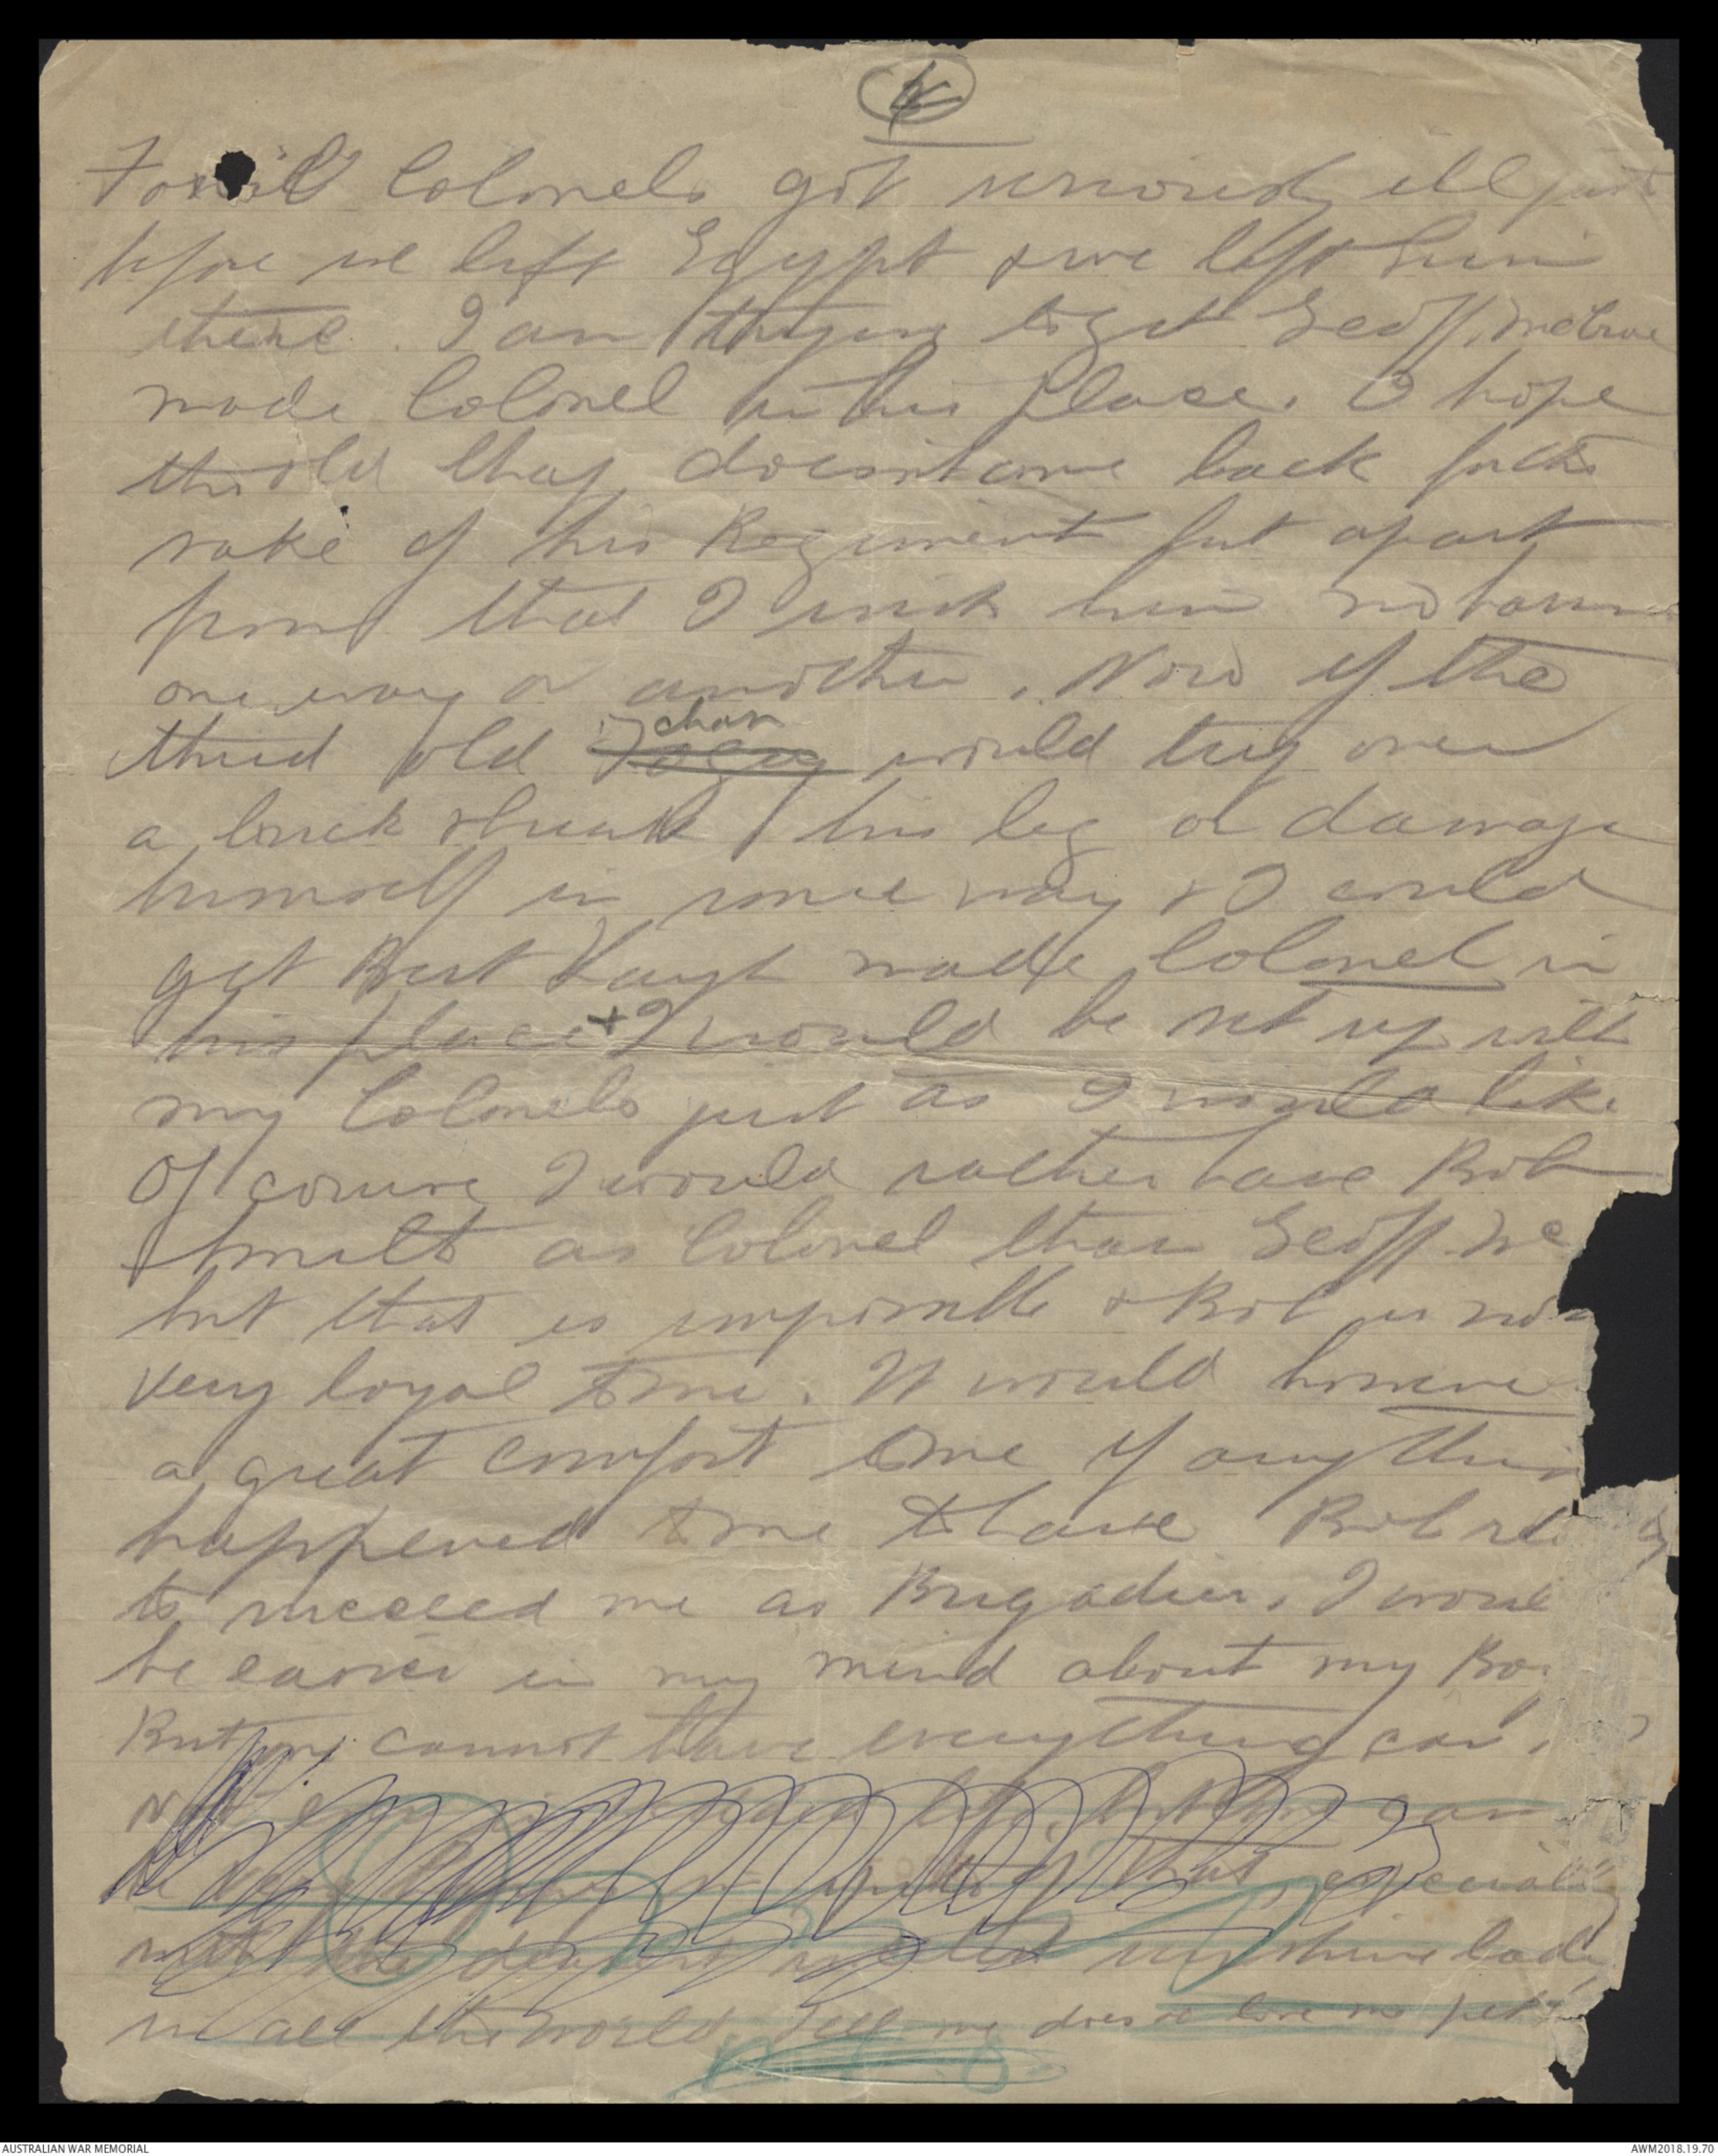 4
Fossil Colonels got seriously ill just
before we left Egypt & we left him
there. I am trying to get Geoff. McCrae
made Colonel in his place. I hope
the old chap doesn't come back for the
sake of his Regiment but apart
from that I wish him no harm
one way or another. Now if the
third old chap would trip over
a brick & break his leg or damage
himself in some way & I could
get Bert Layh made Colonel in
his place + I would be set up with
my Colonels just as I would like
Of course I would rather have Bob
Smith as Colonel than Geoff. Mc
but that is impossible & Bob is not
very loyal to me. It would however
a great comfort to me if anything
happened to me to have Bob
to succeed me as Brigadier. I would
be easier in my mind about my
But one cannot have everything can
one
but one can
be very in spite of that, especially
with the dearest sunshine lady
in all the world Tell me does oo love me pet